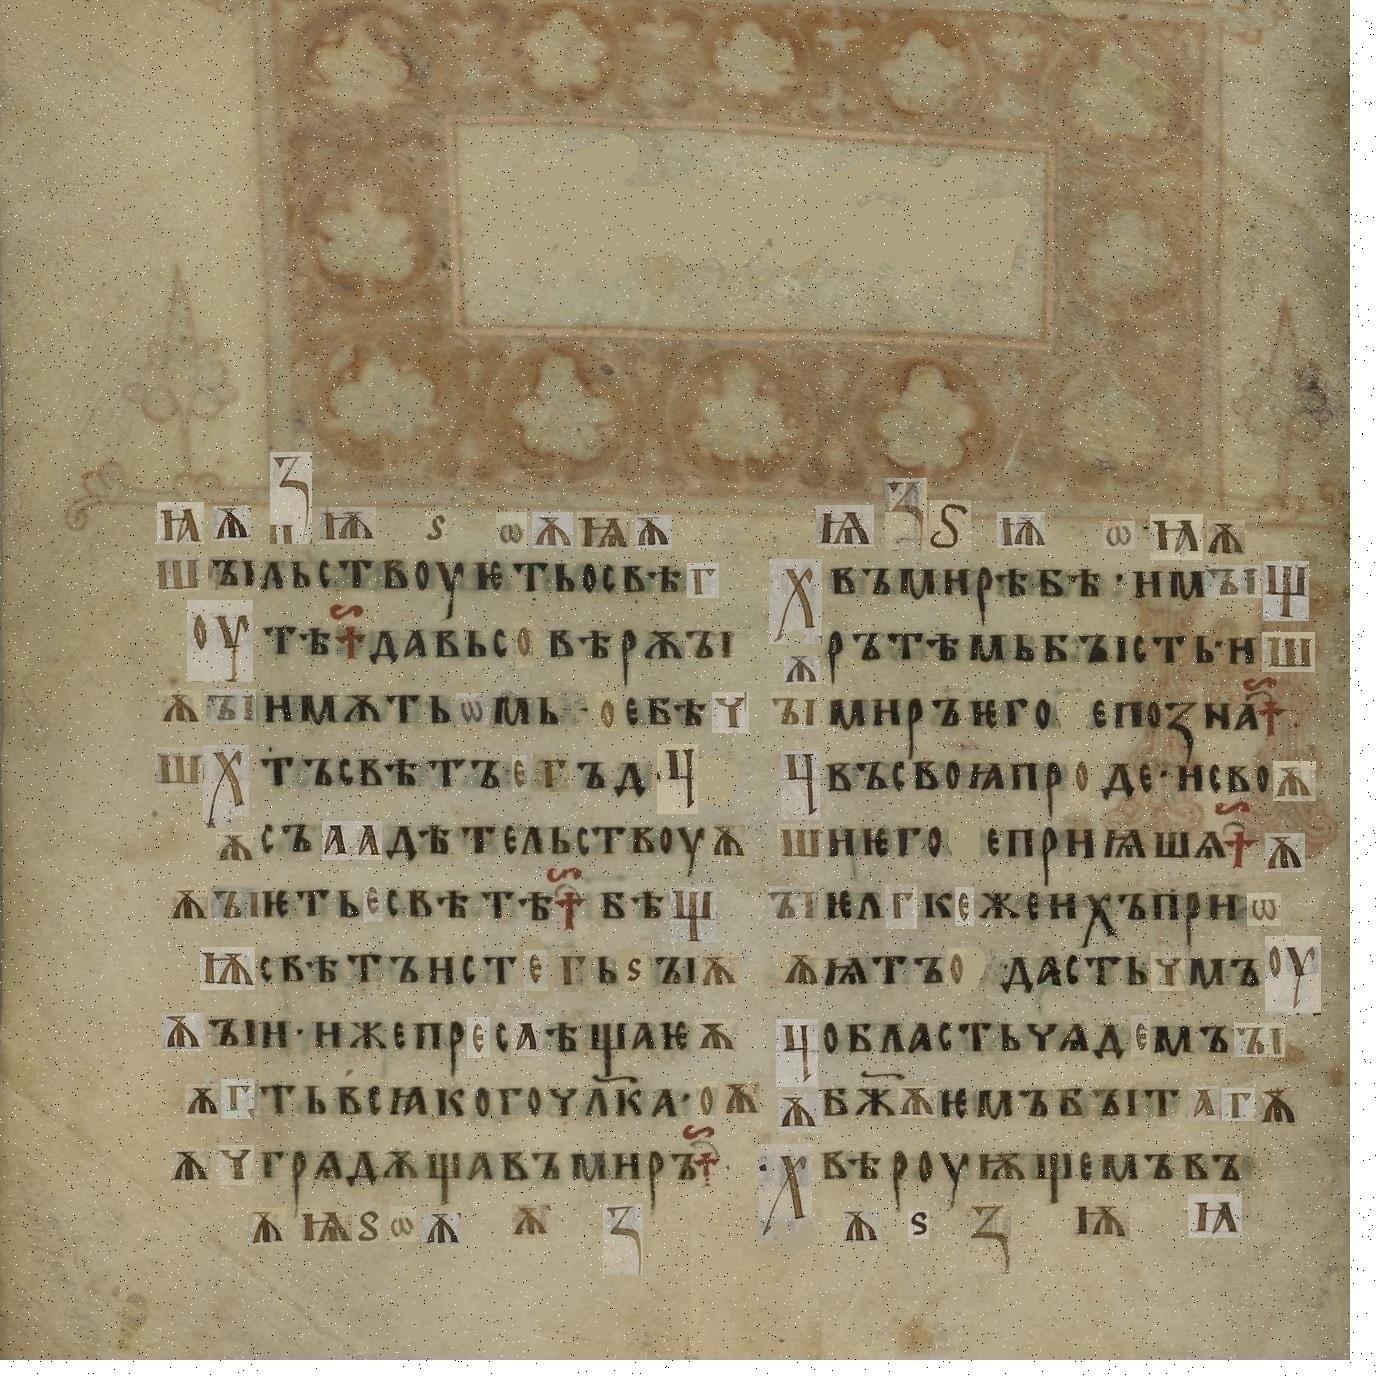 ꙗ ѫ з ѭ ѕ ѡ ѫ ѩ ѫ
шꙑльствоуѥтьосвѣг
оу тѣ давьсо вѣрѫꙑ
ѫꙑимѫтьѡмь · оебѣү
шхтъсвѣтъегъд·ч
ѫсъаадѣтельствоуѫ
ѫꙑѥтьесвѣтѣ бѣщ
ѭсвѣтъистегьѕꙑѫ
ѫꙑи·ижепресаѣщаѥѫ
ѫгтьвсꙗкогоүлка·оѫ
ѫүгрѧдѫщавъмиръ
ѫ ѩѕѡѫ ѫ з
ѩ з ѕ ѭ ѡ·ꙗѫ
хвъмирѣбѣ·имꙑщ
ѫрътѣмьбꙑсть·иш
ꙑмиръѥго епозна
чвъсвоꙗпро де·исвоѫ
шиѥго еприѩшѧ ѫ
ꙑѥлгкежеихъприѡ
ѫѩтъо дастьүмъоу
чобластьүѧдемъꙑ
ѫбжѫѥмъбꙑтагѫ
хвѣроуѭщемъвъ
ѫ ѕ з ѭ ꙗ